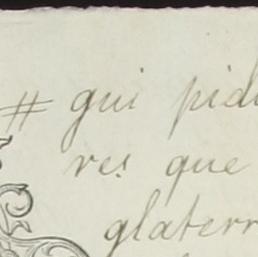 # qui pid
res que
glaterr